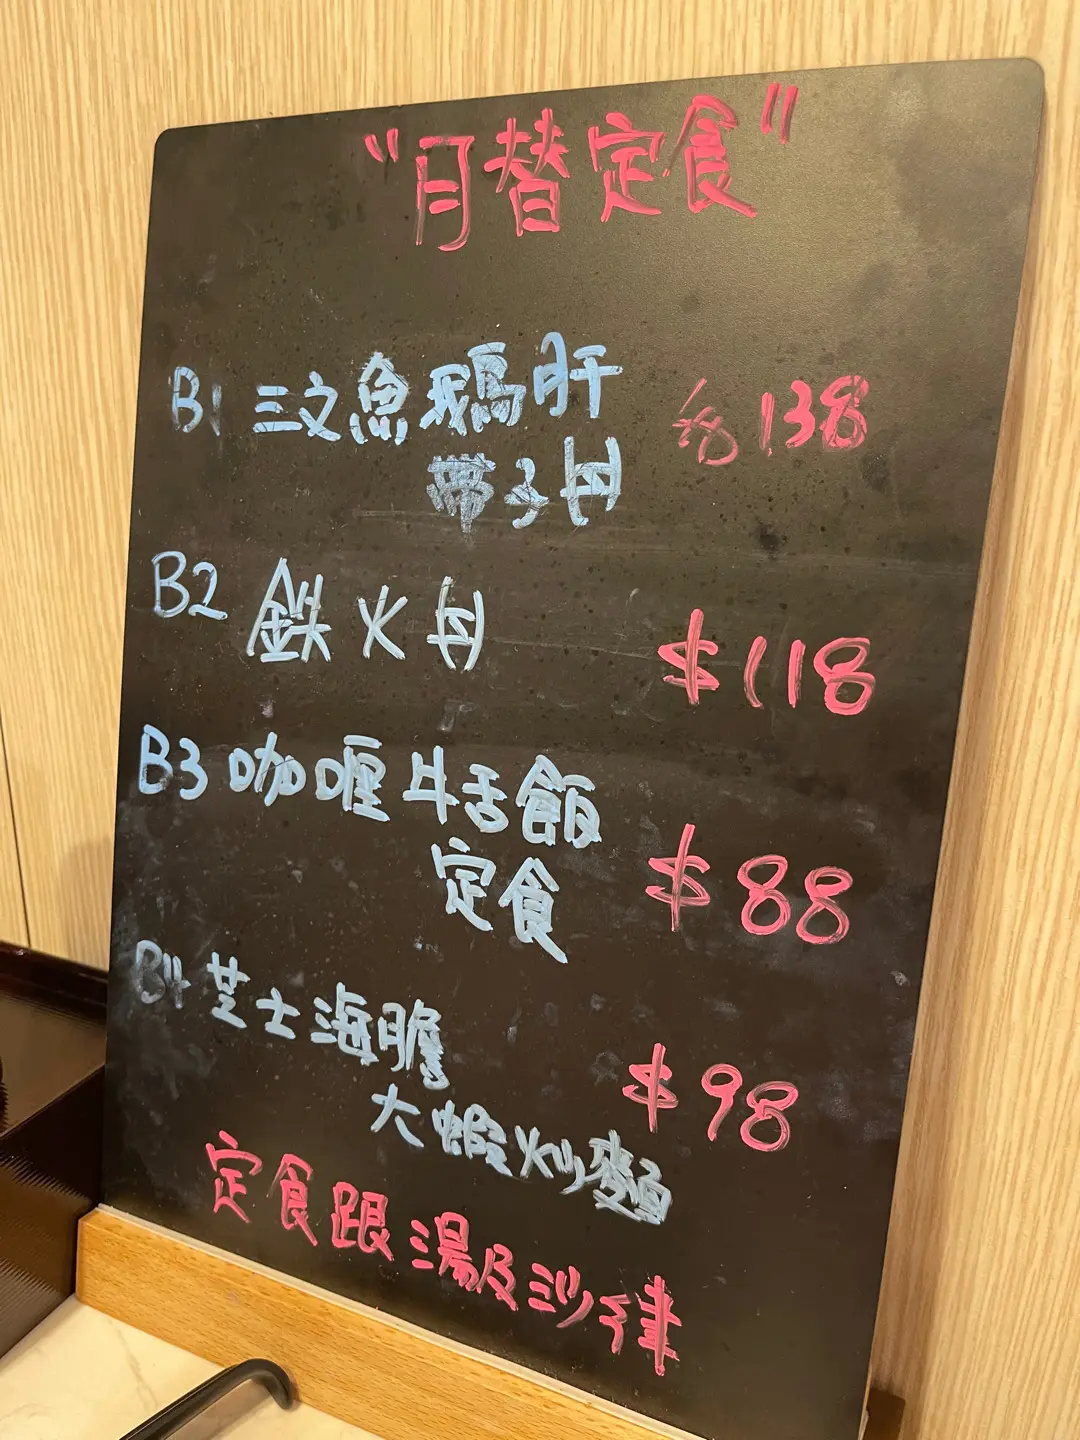 "月替定食"
B1 三文魚鵝肝 $138
帶子丼
B2 鉄火丼 $118
B3 咖喱牛舌飯
定食 $88
B4 芝士海膽
大蝦炒麵 $98
定食跟湯及沙律